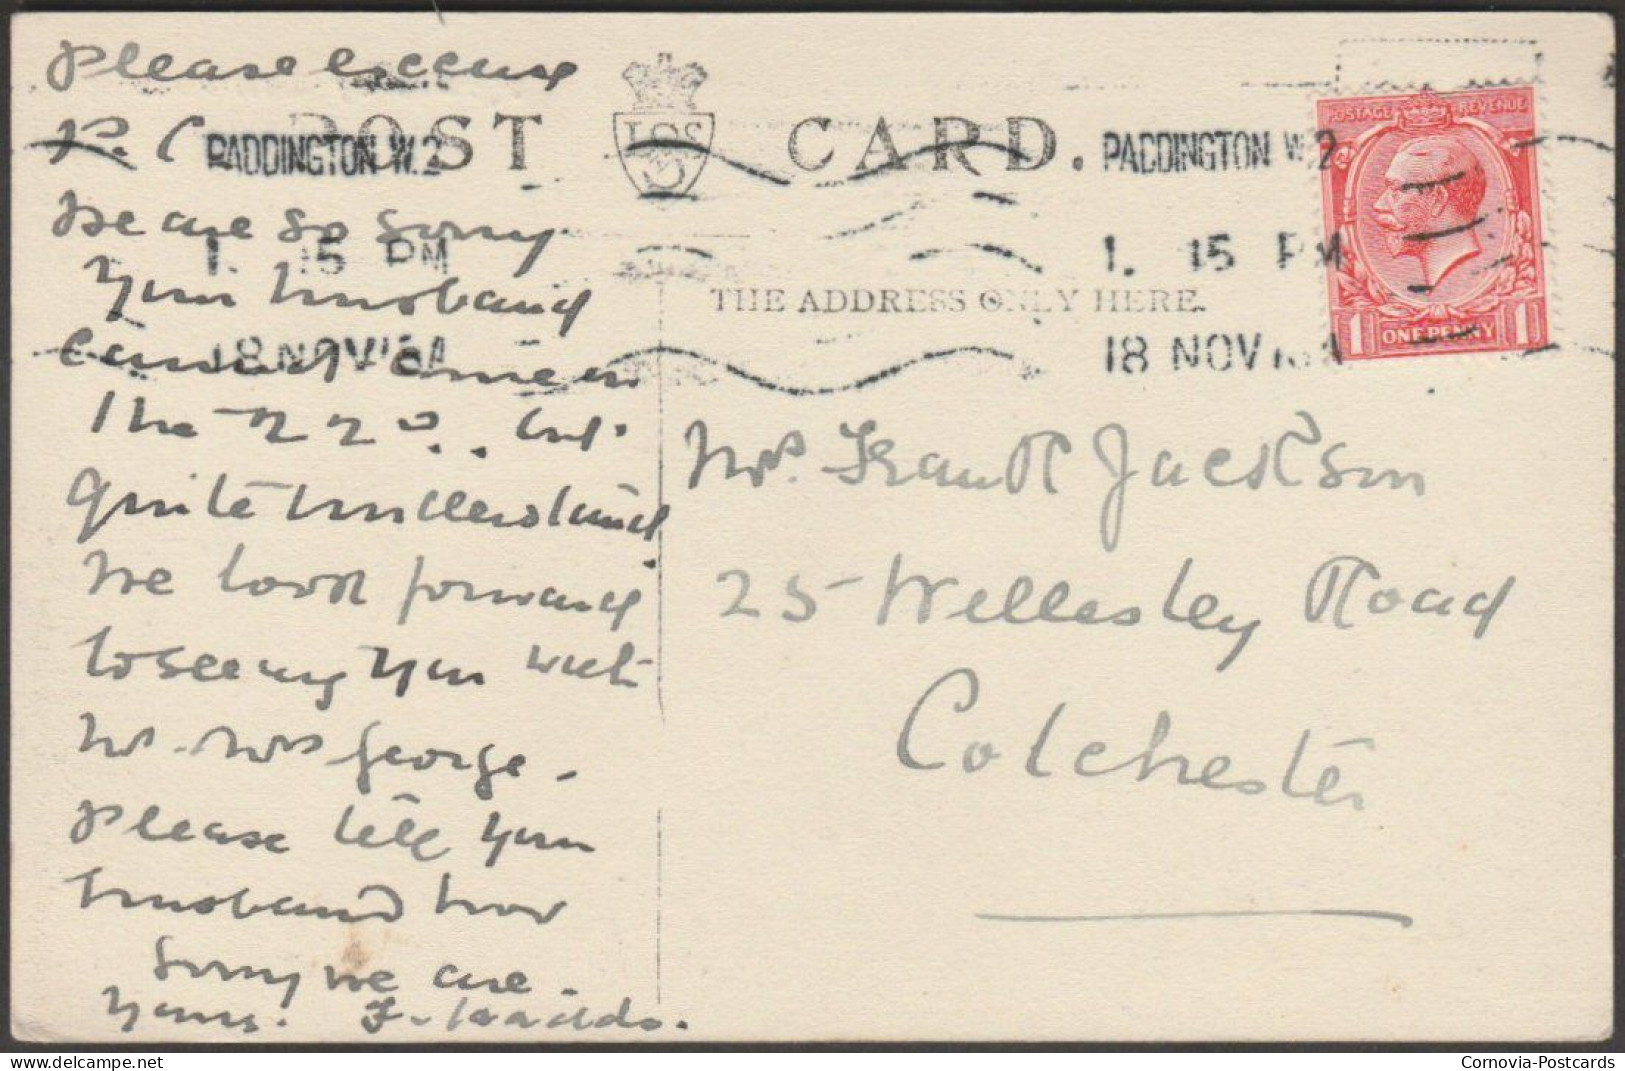 Please excuse
P. C.
We are so sorry
your husband
cannot come on
the 22nd.. but
quite understand.
We look forward
to seeing you with
Mr. Mrs George.
Please tell your
husband how
sorry we are.
yours. F.
POST CARD.
THE ADDRESS ONLY HERE.
PADDINGTON W.2
1. 15 PM
18 NOV
PADDINGTON W.2
1. 15 PM
18 NOV
POSTAGE REVENUE
1 ONE PENNY 1
Mrs. Frank Jackson
25 Wellesley Road
Colchester
Cornovia-Postcards